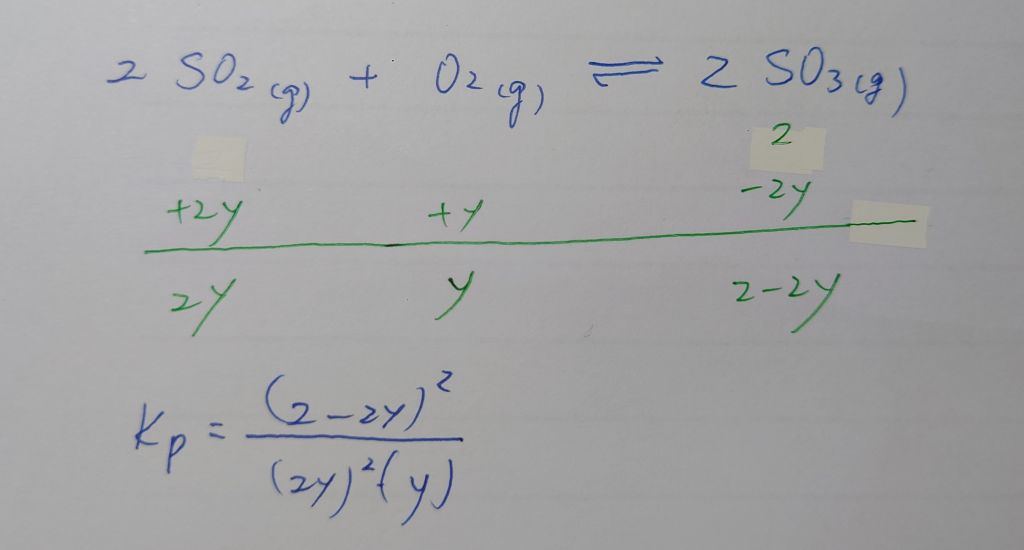 2 SO₂(g) + O₂(g) ⇌ 2 SO₃(g)
2
+2y +y -2y
2y y 2-2y
Kp = (2-2y)² / (2y)²(y)